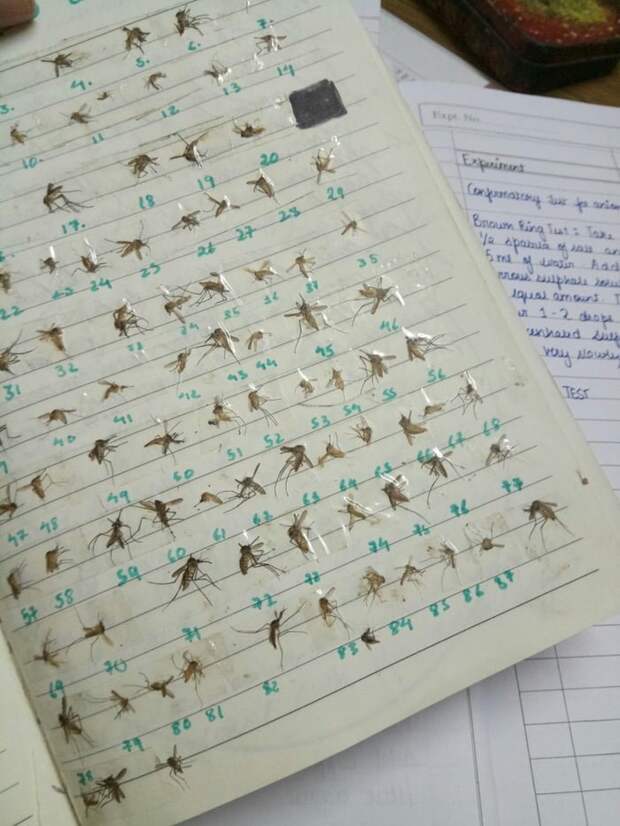 3. 4. 5. 6. 7.
10. 11 12 13 14
17. 18 19 20
22 23 24 25 26 27 28 29
31 32 33 34 35 36 37 35
40 41 42 43 44 45 46
47 48 49 50 51 52 53 54 55 56
57 58 59 60 61 62 63 64 65 66 67 68
69 70 71 72 73 74 75 76 77
78 79 80 81 82 83 84 85 86 87
Expt. No.
Experiment
Confirmatory Test for anion
Brown Ring Test: Take
1/2 spatula of salt an
5 ml of water. Add
rrous sulphate solu
equal amount. T
1-2 drops
very slowly
TEST